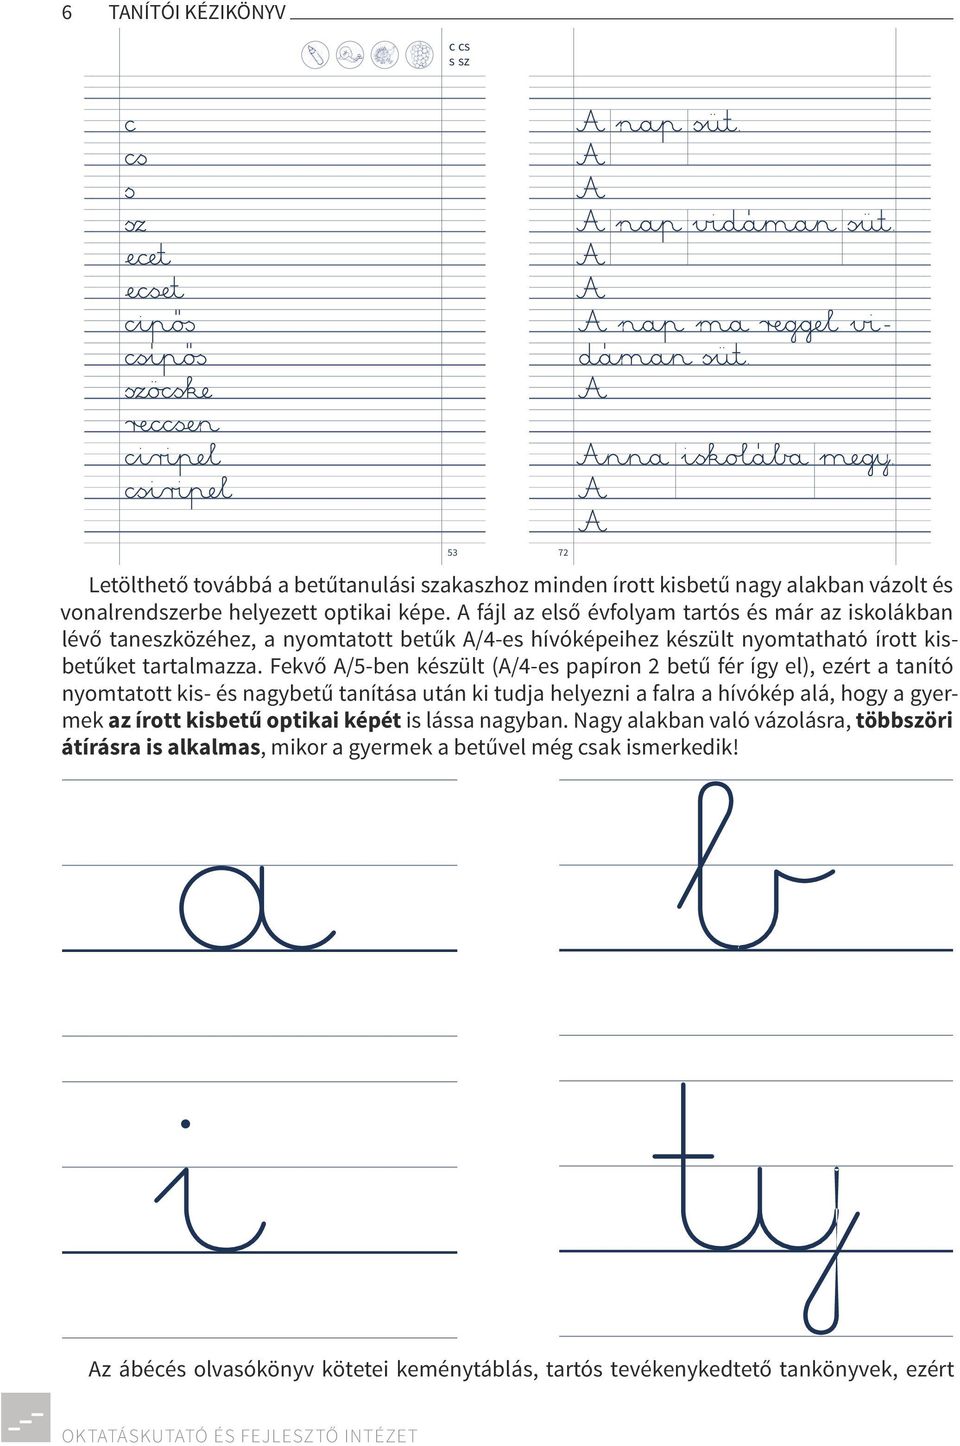 6 TANÍTÓI KÉZIKÖNYV
c cs
s sz
c
cs
s
sz
ecet
ecset
cipős
csípős
szöcske
reccsen
ciripel
csiripel
53
A nap süt.
A
A
A nap vidáman süt.
A
A
A nap ma reggel vi-
dáman süt.
A
Anna iskolába megy.
A
A
72
Letölthető továbbá a betűtanulási szakaszhoz minden írott kisbetű nagy alakban vázolt és
vonalrendszerbe helyezett optikai képe. A fájl az első évfolyam tartós és már az iskolákban
lévő taneszközéhez, a nyomtatott betűk A/4-es hívóképeihez készült nyomtatható írott kis-
betűket tartalmazza. Fekvő A/5-ben készült (A/4-es papíron 2 betű fér így el), ezért a tanító
nyomtatott kis- és nagybetű tanítása után ki tudja helyezni a falra a hívókép alá, hogy a gyer-
mek az írott kisbetű optikai képét is lássa nagyban. Nagy alakban való vázolásra, többszöri
átírásra is alkalmas, mikor a gyermek a betűvel még csak ismerkedik!
a b
i ty
Az ábécés olvasókönyv kötetei keménytáblás, tartós tevékenykedtető tankönyvek, ezért
OKTATÁSKUTATÓ ÉS FEJLESZTŐ INTÉZET